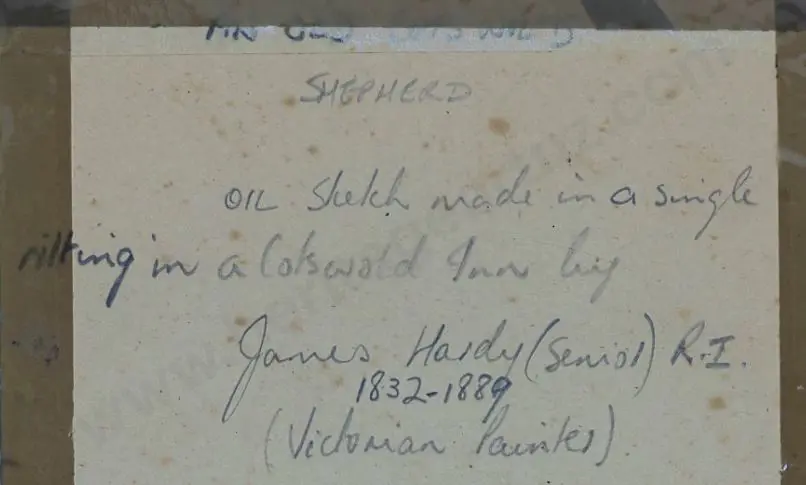 AN OLD COTSWOLD
SHEPHERD
OIL Sketch made in a single
sitting in a Cotswold Inn by
James Hardy (Senior) R.I.
1832-1889
(Victorian Painter).